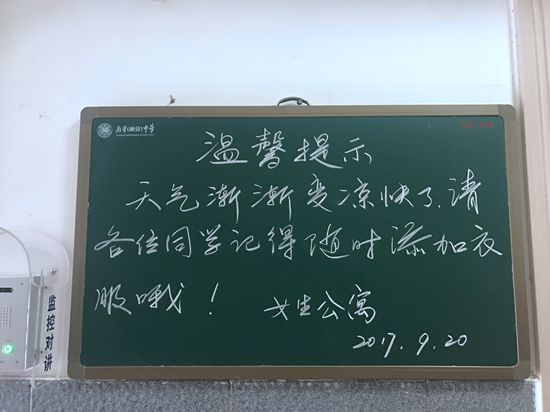 温馨提示
天气渐渐变凉快了,请
各位同学记得随时添加衣
服哦!
女生公寓
2017.9.20
监控对讲